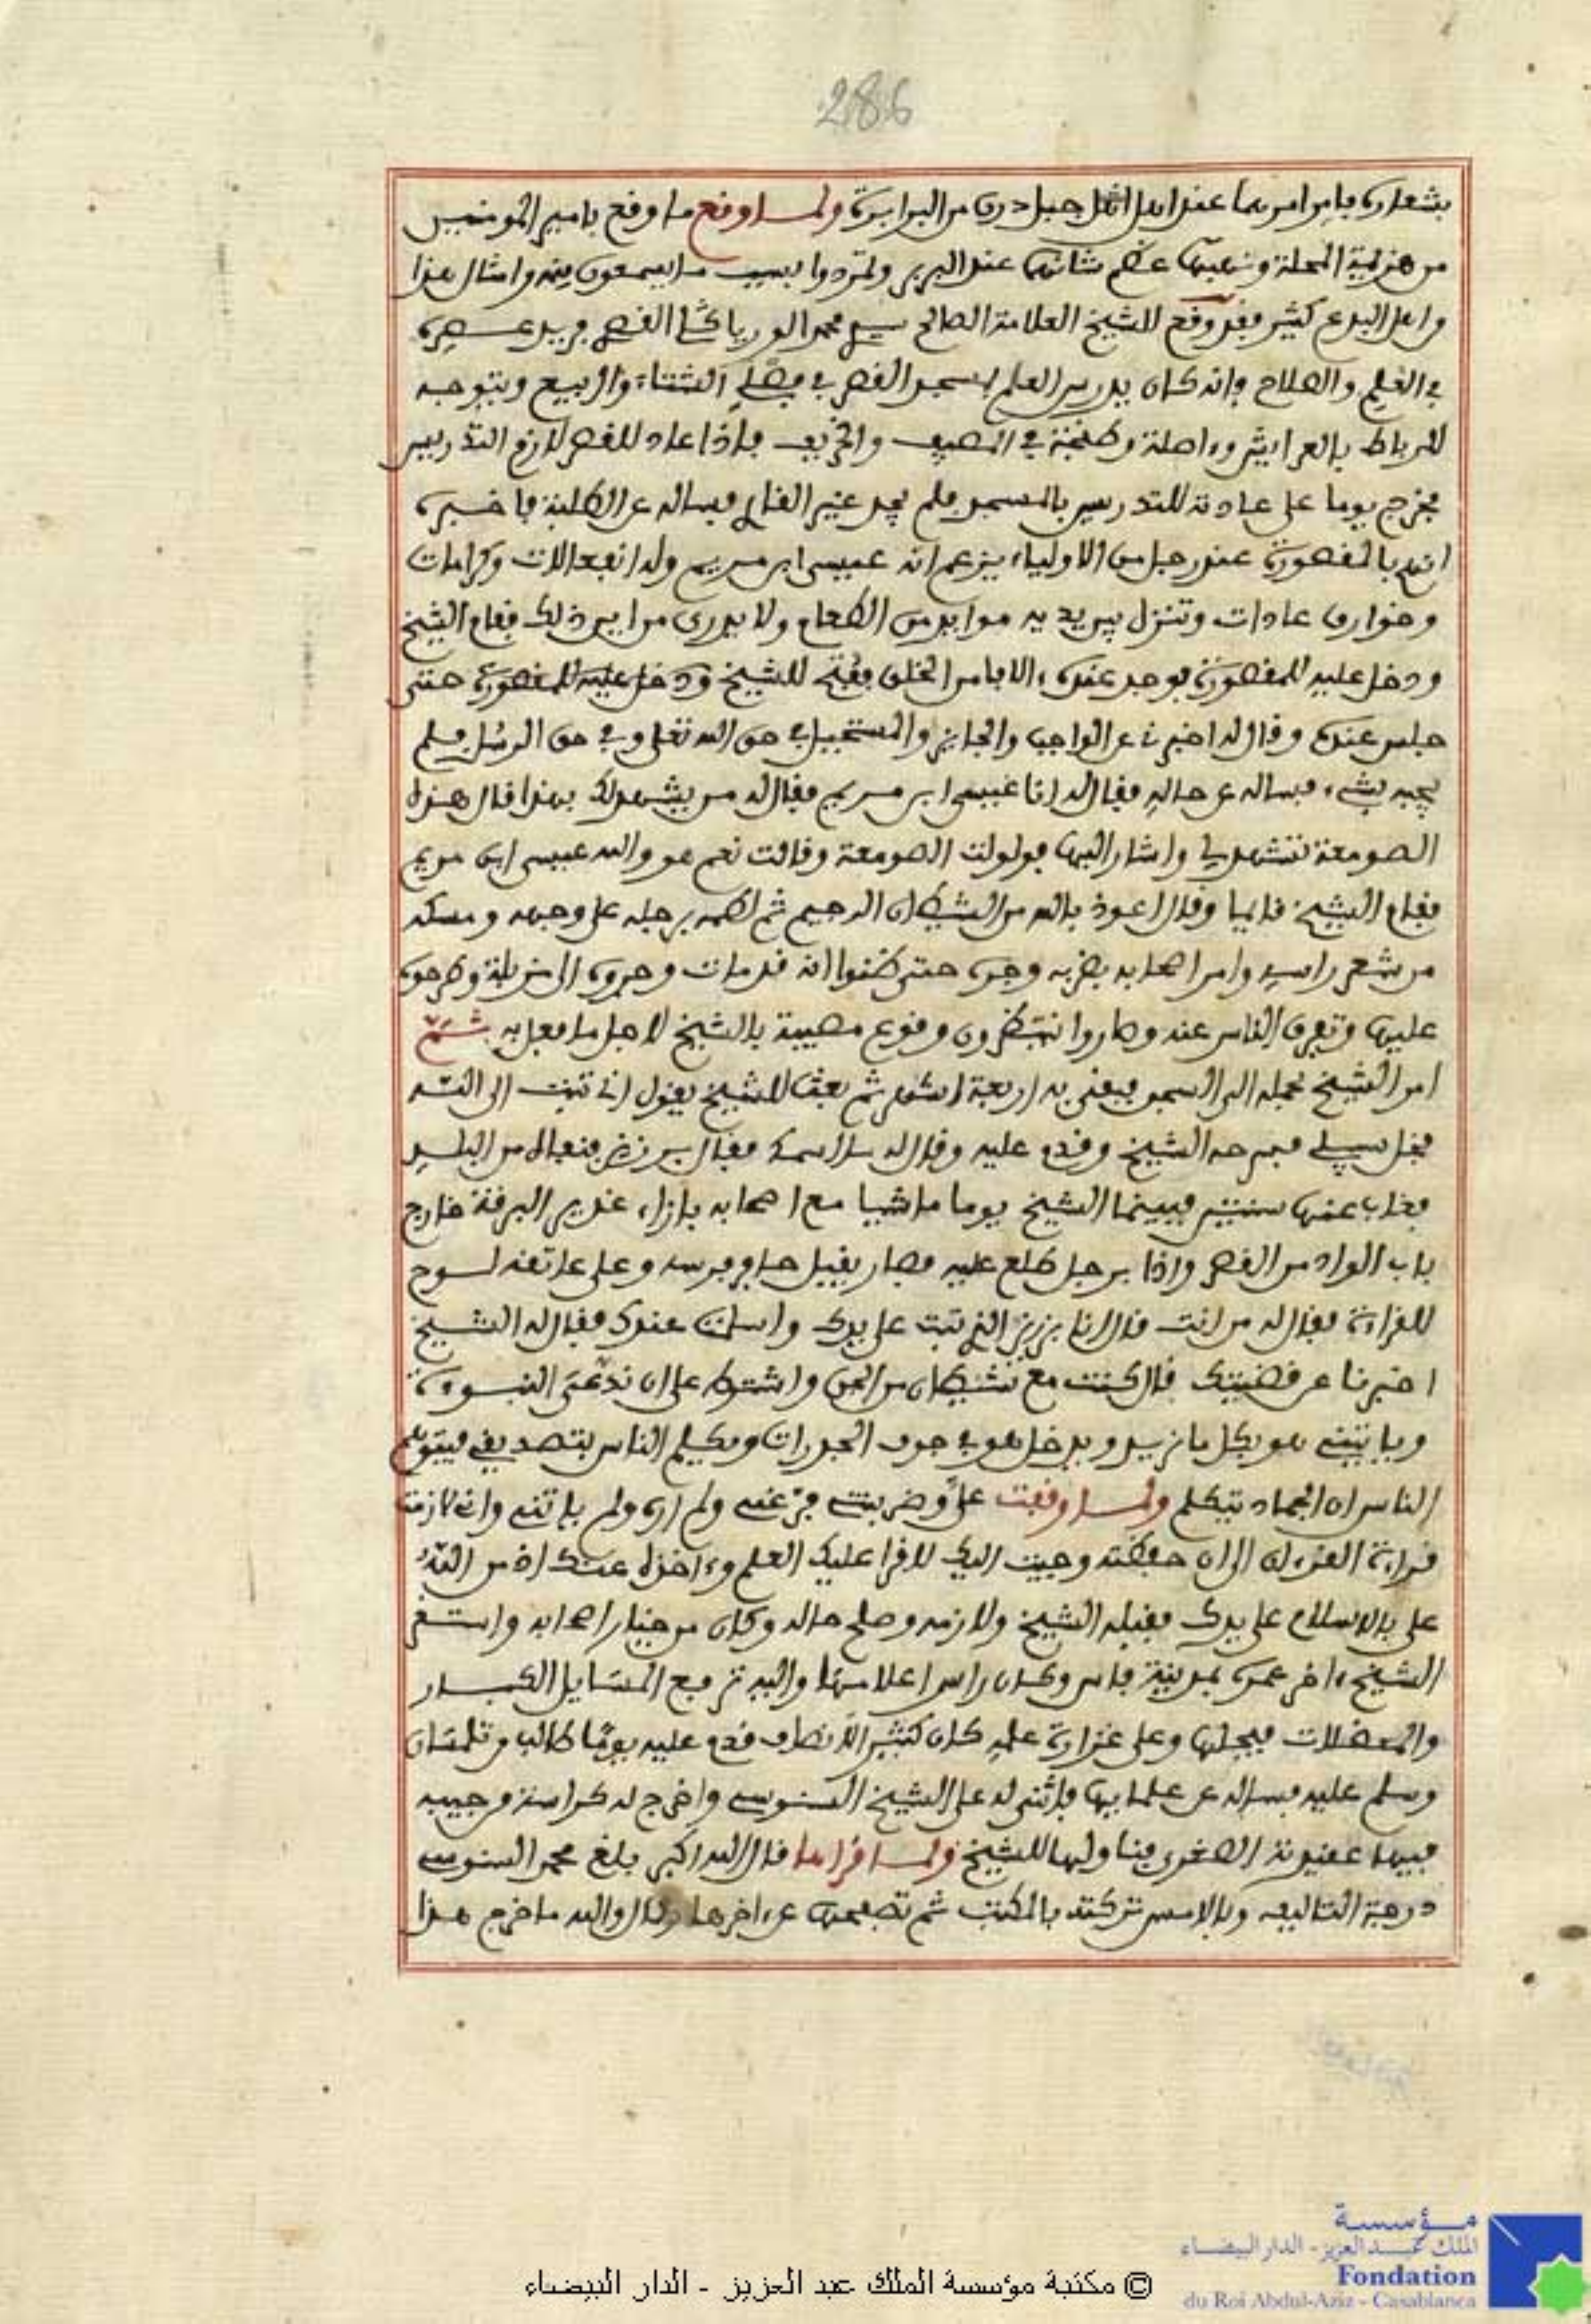 286
بشعاره فامر امرهما عند اهل جبل درن من البرابرة ولما وقع ما وقع بامير المومنين
من هزيمة المحلة ونهبها عظم شانها عند البربر وتمردوا بسبب ما يسمعون منه وامثال هذا
من اهل البدع كثير فقد وقع للشيخ العلامة الصالح سيدي محمد الورياكلي القصري فريد عصره
في العلم والصلاح فانه كان يدرس العلم بمسجد القصر في فصلي الشتاء والربيع ويتوجه
للرباط بالعرايش واصلة وطنجة في المصيف والخريف فاذا عاد للقصر لازم التدريس
فخرج يوما على عادته للتدريس بالمسجد فلم يجد غير القليل فساله عن الطلبة فاخبره
انهم بالمقصورة عند رجل من الاولياء يزعم انه عيسى ابن مريم وله انفعالات وكرامات
وخوارق عادات وتنزل بين يديه موايد من الطعام ولا يدرى من اين ذلك فقام الشيخ
ودخل عليه للمقصورة فوجد عنده الافا من الخلق ففتح للشيخ ودخل عليه للمقصورة حتى
جلس عنده وقال له اخبرني عن الواجب والجايز والمستحيل في حق الله تعلى وفي حق الرسل فلم
يجبه بشيء فساله عن حاله فقال له انا عيسى ابن مريم فقال له من يشهد لك بهذا قال هذه
الصومعة تشهد لي واشار اليها فولولت الصومعة وقالت نعم هو والله عيسى ابن مريم
فقام الشيخ قايما وقال اعوذ بالله من الشيطان الرجيم ثم لطمه برجله على وجهه ومسكه
من شعر راسه وامر اصحابه بضربه وجره حتى ظنوا انه قد مات وجروه الى مزبلة وطرحوه
عليها وتفرق الناس عنه وصاروا ينتظرون وقوع مصيبة بالشيخ لاجل ما فعل به ثم
امر الشيخ بحمله الى السجن فبقى به اربعة اشهر ثم بعث للشيخ يقول اني تبت الى الله
فخل سبيلي فسرحه الشيخ وقدم عليه وقال له ما اسمك فقال بيرزيز فنفاه من البلد
فغاب عنها سنتين فبينما الشيخ يوما ماشيا مع اصحابه بازاء غدير البرقة خارج
باب الواد من القصر واذا برجل طلع عليه فصار يقبل حافر فرسه وعلى عاتقه لوح
للقراءة فقال له من انت قال انا بيرزيز الذي تبت على يدك واسلمت عندك فقال له الشيخ
اخبرنا عن قضيتك قال كنت مع شيطان من الجن واشترط على ان ندعى النبوة
وياتيني هو بكل ما نريد ويدخل هو في جوف الجدرات ويكلم الناس بتصديقي فيتوهم
الناس ان الجماد يتكلم ولما وقفت علي وضربتني فر عني ولم اره ولم ياتني واني لازمت
قراءة القرءان الى ان حفظته وجيت اليك لاقرا عليك العلم وءاخذه عنك اذ من الله
علي بالاسلام على يدك فقبله الشيخ ولازمه وصلح حاله وكان من خيار اصحابه واستقر
الشيخ ءاخر عمره بمدينة فاس وكان راس اعلامها واليه ترفع المسايل الكبار
والمعضلات فيحلها وعلى غزارة علمه كان كثير الانصاف قدم عليه يوما طالب من تلمسان
وسلم عليه فساله عن علمايها فاثنى له على الشيخ السنوسي واخرج له كراسة من جيبه
فيها عقيدته الصغرى فناولها للشيخ ولما قراها قال الله اكبر بلغ محمد السنوسي
درجة التاليف وبالامس تركته بالمكتب ثم تصفحها عن ءاخرها وقال والله ما خرج هذا
© مكتبة مؤسسة الملك عبد العزيز - الدار البيضاء
مؤسسة
الملك عبد العزيز - الدار البيضاء
Fondation
du Roi Abdul-Aziz - Casablanca